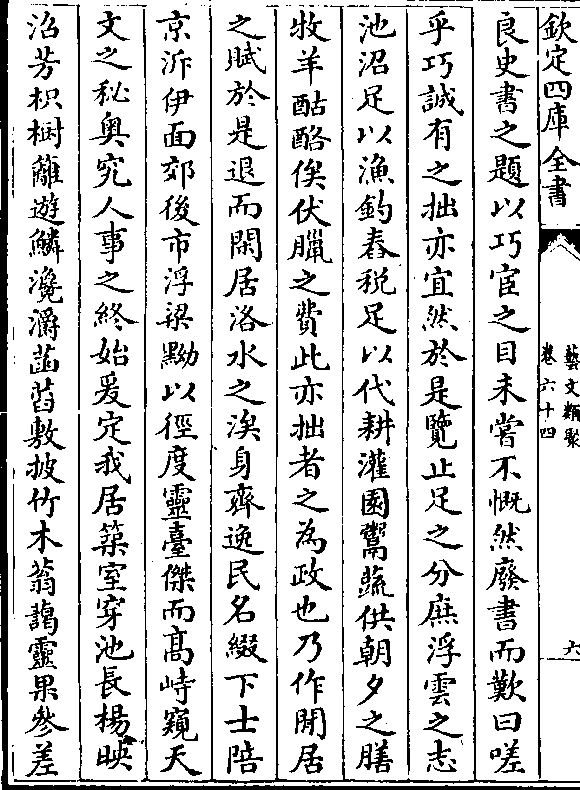 欽定四庫全書
藝文類聚
卷六十四
六
良史書之題以巧宦之目未嘗不慨然廢書而歎曰嗟
乎巧誠有之拙亦宜然於是覽止足之分庶浮雲之志
池沼足以漁釣舂税足以代耕灌園鬻蔬供朝夕之膳
牧羊酤酪俟伏臘之費此亦拙者之為政也乃作閒居
之賦於是退而閑居洛水之涘身齊逸民名綴下士陪
京泝伊面郊後市浮梁黝以徑度靈臺傑而髙峙窺天
文之秘奥究人事之終始爰定我居築室穿池長楊映
沼芳枳樹籬遊鱗瀺灂菡萏敷披竹木蓊藹靈果參差